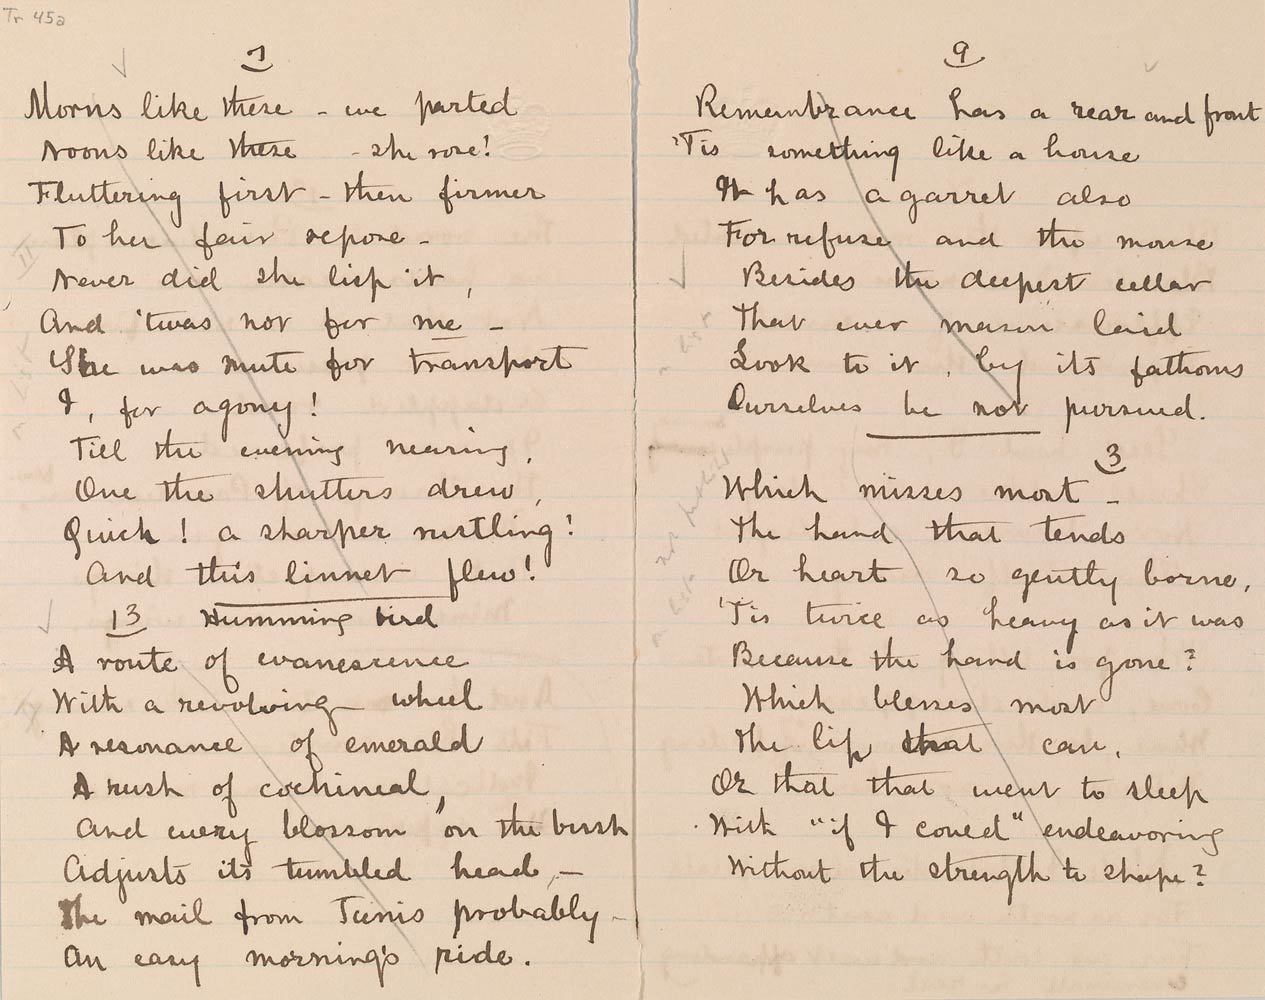 Tr 45a
7
Morns like these – we parted
Noons like these – she rose!
Fluttering first – then firmer
To her fair repose –
Never did she lisp it,
And 'twas not for me –
She was mute for transport
I, for agony!
Till the evening nearing,
One the shutters drew,
Quick! a sharper rustling!
And this linnet flew!
13 Humming bird
A route of evanescence
With a revolving wheel
A resonance of emerald
A rush of cochineal,
And every blossom on the bush
Adjusts its tumbled head, –
The mail from Tunis probably –
An easy morning's ride.
9
Remembrance has a rear and front
'Tis something like a house
It has a garret also
For refuse and the mouse
Besides the deepest cellar
That ever mason laid
Look to it, by its fathoms
Ourselves be not pursued.
3
Which misses most –
The hand that tends
Or heart so gently borne,
'Tis twice as heavy as it was
Because the hand is gone?
Which blesses most
The lip that can,
Or that that went to sleep
With "if I could" endeavoring
Without the strength to shape?